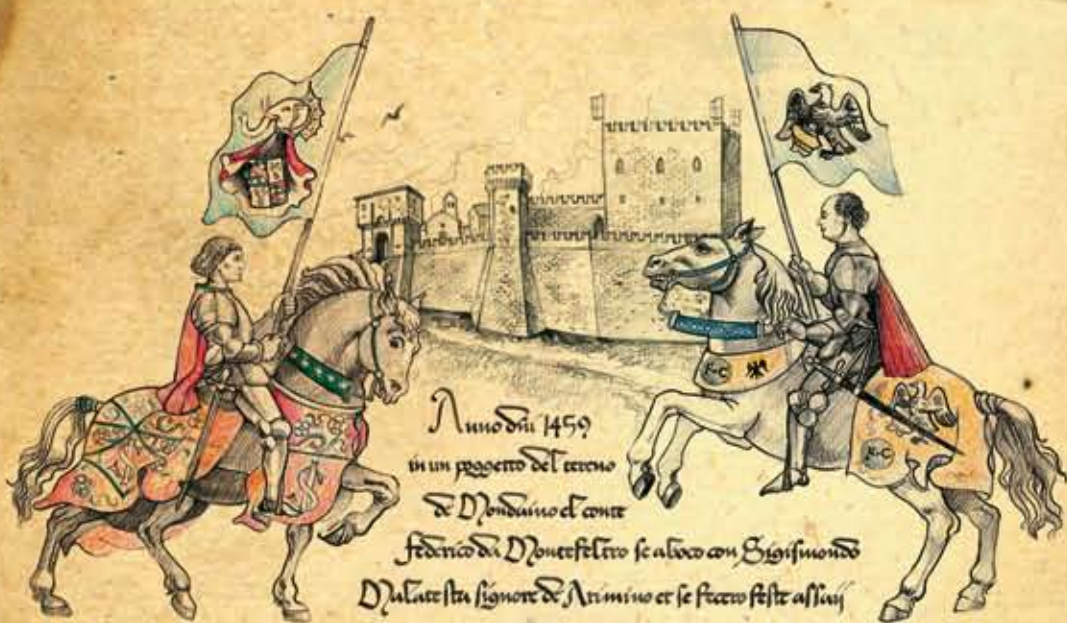 Anno dñi 1459
in un poggetto del tereno
de Mondaino el conte
federico da Montefeltro se aboco con Sigismondo
Malatesta signore de Arimino et se fecero feste assaij